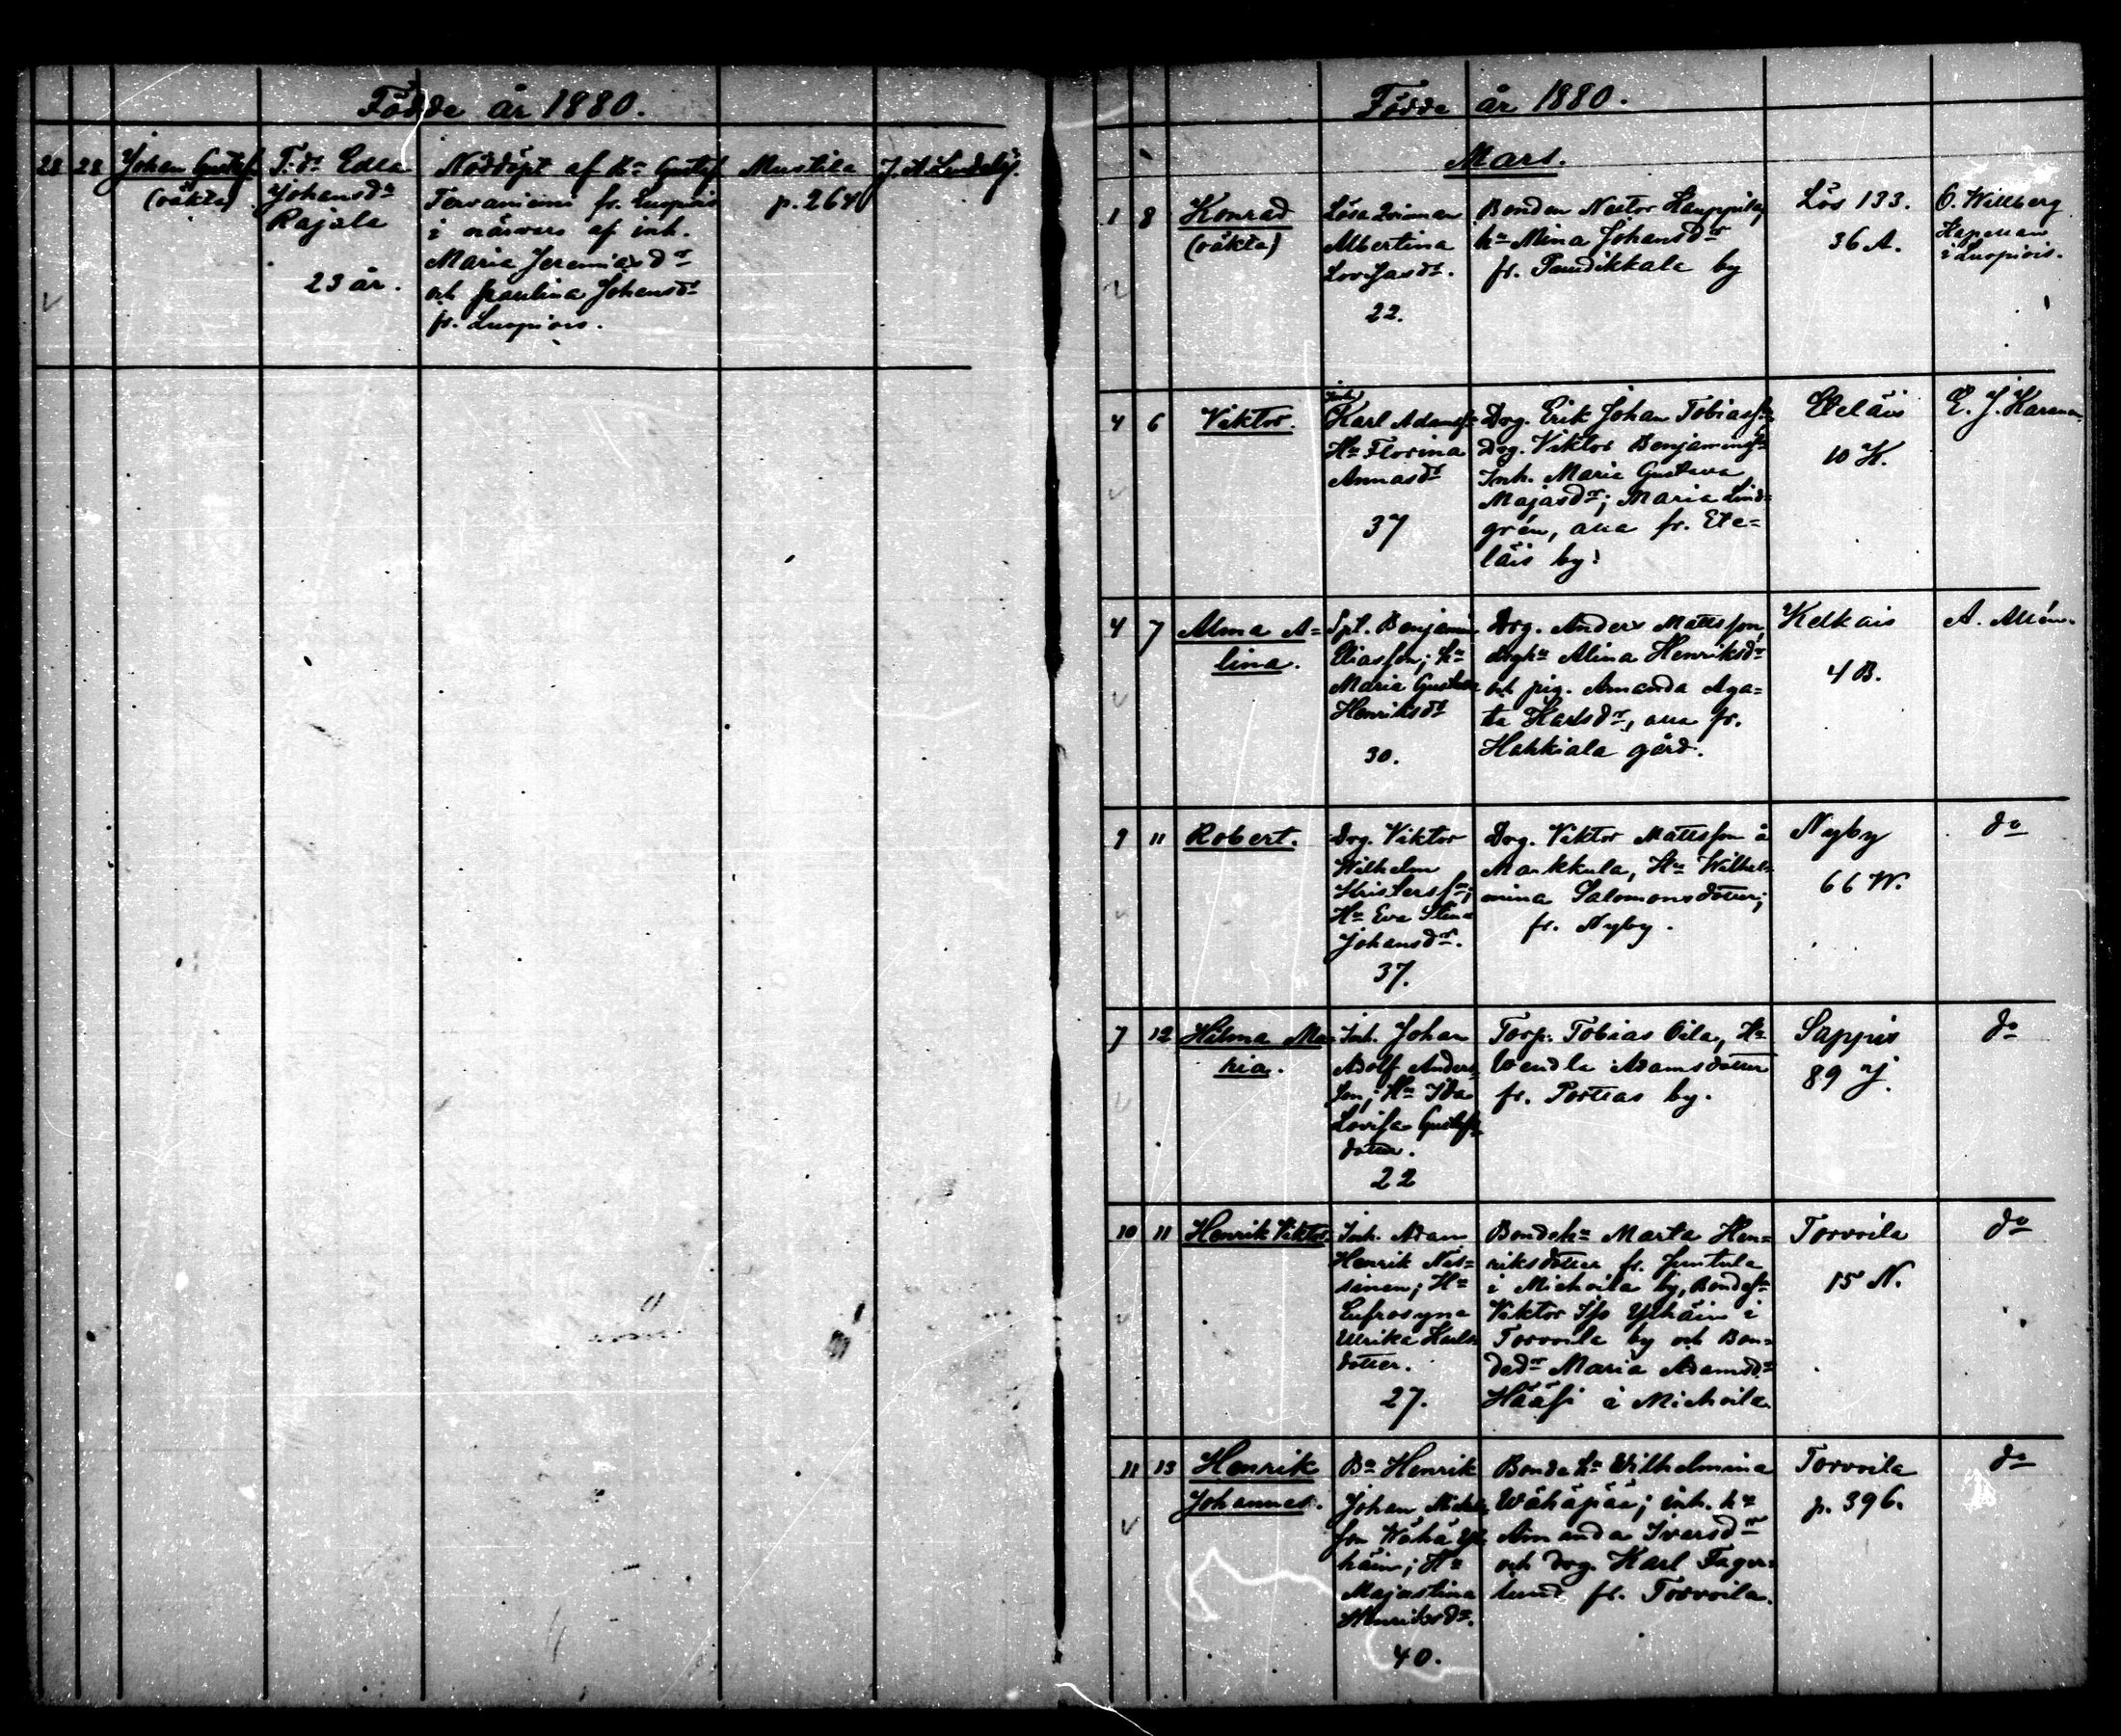 Födde år 1880.
28 28 Johan Gustaf
(oäkta)
T:dr Edla
Johansdr
Rajala
23 år.
Nöddöpt af hu Gustaf
Tervaniemi fr. Luopiois
i närvaro af inh.
Maria Jeremiasdr
och Paulina Johansdr
fr. Luopiois.
Mustila
p. 264
Födde år 1880.
Mars.
1 8 Konrad
(oäkta)
Lösa
Albertina
Lovisasdr.
22.
Bonden Nestor Hauppila,
hu Mina Johansdr
fr. Puudikkala by
Lös 133.
36 A.
O. Willberg
Kapellan
i Luopiois.
4 6 Viktor.
Inh.
Karl Adamss:
Hu Florina
Annasdr
37
Drg. Erik Johan Tobiass:
Drg. Viktor Benjamins:
Inh. Maria Gustava
Majasdr; Maria Lind=
grén, alla fr. Ete=
läis by.
Eteläis
10 K.
4 7 Alma A=
lina.
Spt. Benjamin
Eliasson; hu
Maria Gustava
Henriksdr
30.
Drg. Anders Mattsson,
drghu Alina Henriksdr
och pig. Amanda Aga=
ta Karlsdr, alla fr.
Hahkiala gård.
Kelkais
4 B.
A. Allén.
9 11 Robert.
Drg. Viktor
Wilhelm
Kristerss:;
Hu Eva Stina
Johansdr.
37.
Drg. Viktor Mattsson å
Markkula, Hu Wilhel=
mina Salomonsdotter;
fr. Nyby.
Nyby
66 W.
do
7 12 Hilma Ma=
ria.
Inh. Johan
Adolf Anders=
son; Hu Ida
Lovisa Gustafs=
dotter.
22
Torp. Tobias Oila, Hu
Wendla Adamsdotter
fr. Portras by.
Sappis
89 J.
do
10 11 Henrik Viktor.
Inh. Adam
Henrik Nas=
sinen; Hu
Eufrosyna
Ulrika Karls=
dotter.
27.
Bondehu Marta Hen=
riksdotter fr. Juntula
i Michoila by, Bondes:
Viktor Iso Ylhäin i
Torvoila by och Bon=
dedr Maria Adamsdr
Hääsi i Michoila.
Torvoila
15 N.
do
11 13 Henrik
Johannes.
Bo Henrik
Johan Michels=
son Wähä Yl=
häin; Hu
Majastina
Henriksdr.
40.
Bondehu Wilhelmina
Wähäpää; inh. hu
Amanda Ivarsdr
och drg. Karl Fager=
lund fr. Torvoila.
Torvoila
p. 396.
do